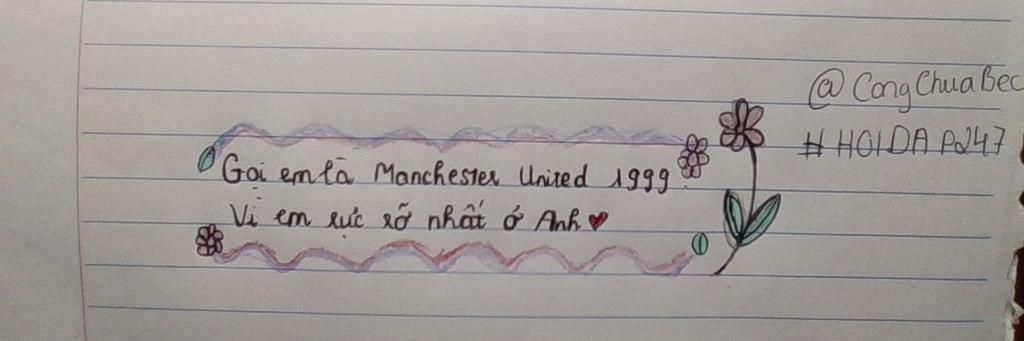 @CongChuaBec
#HOIDAP247
Gọi em là Manchester United 1999.
Vì em rực rỡ nhất ở Anh